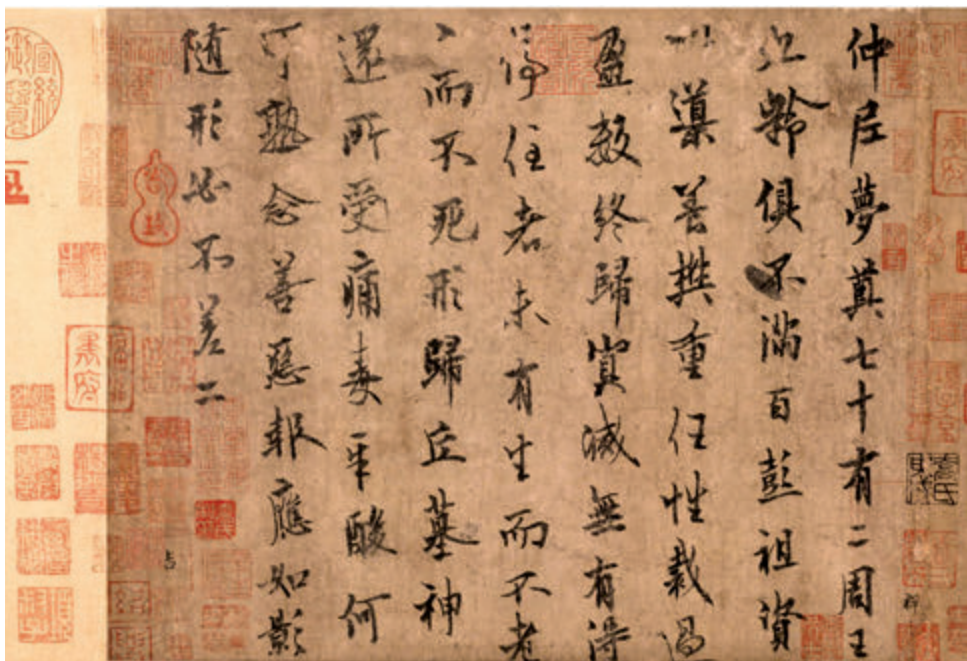 仲尼夢奠七十有二周王
九齡俱不滿百彭祖資
以導養樊重任性裁過
盈數終歸冥滅無有得
停住者未有生而不老
〻而不死形歸丘墓神
還所受痛毒辛酸何
可熟念善惡報應如影
隨形必不差二
宣統御覽